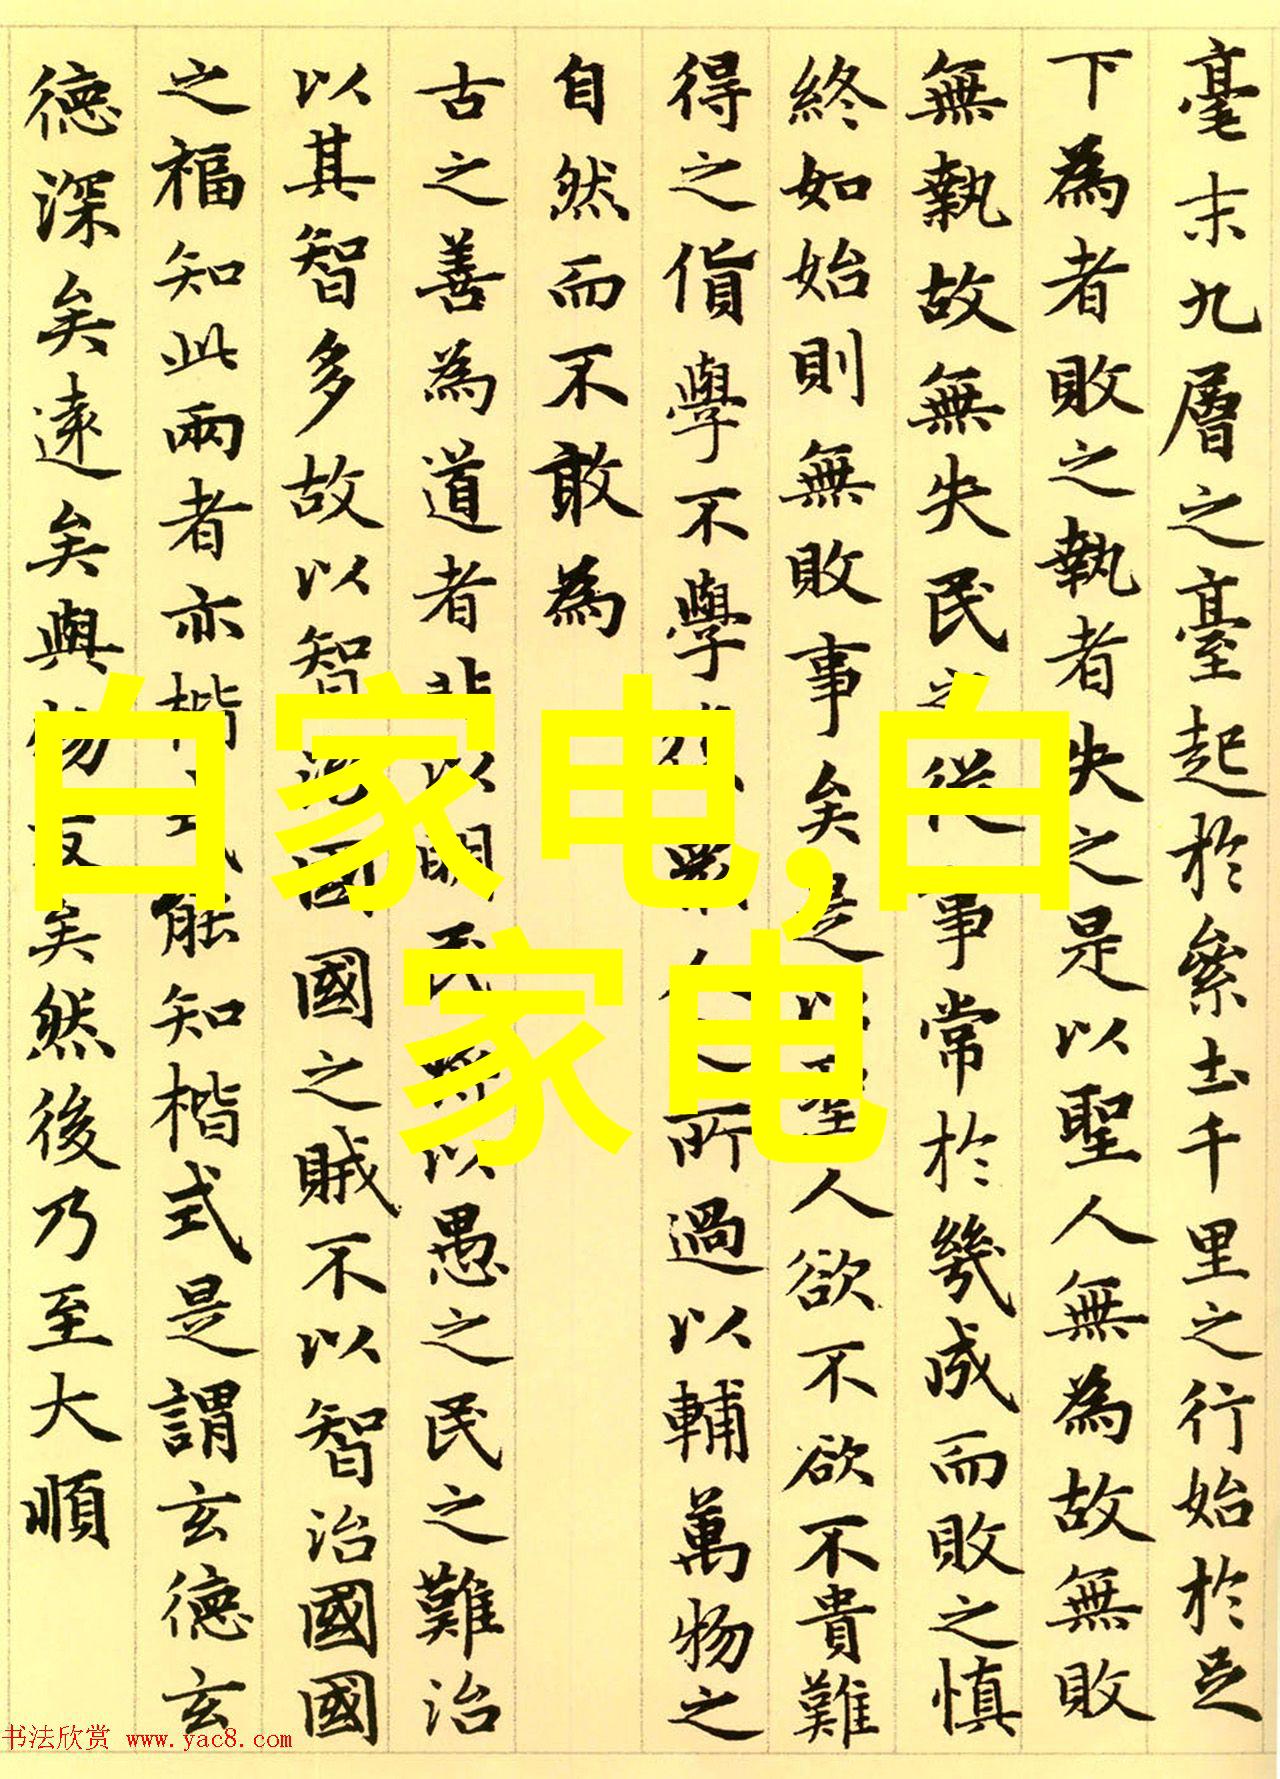 毫末九層之臺起於絫土千里之行始於足
下為者敗之執者失之是以聖人無為故無敗
無執故無失民之從事常於幾成而敗之慎
終如始則無敗事矣是以聖人欲不欲不貴難
得之貨學不學 人之所過以輔萬物之
自然而不敢為
古之善為道者非以明民將以愚之民之難治
以其智多故以智治國國之賊不以智治國國
之福知此兩者亦楷式能知楷式是謂玄德玄
德深矣遠矣與物反矣然後乃至大順
白家电,白
家电
书法欣赏 www.yac8.com